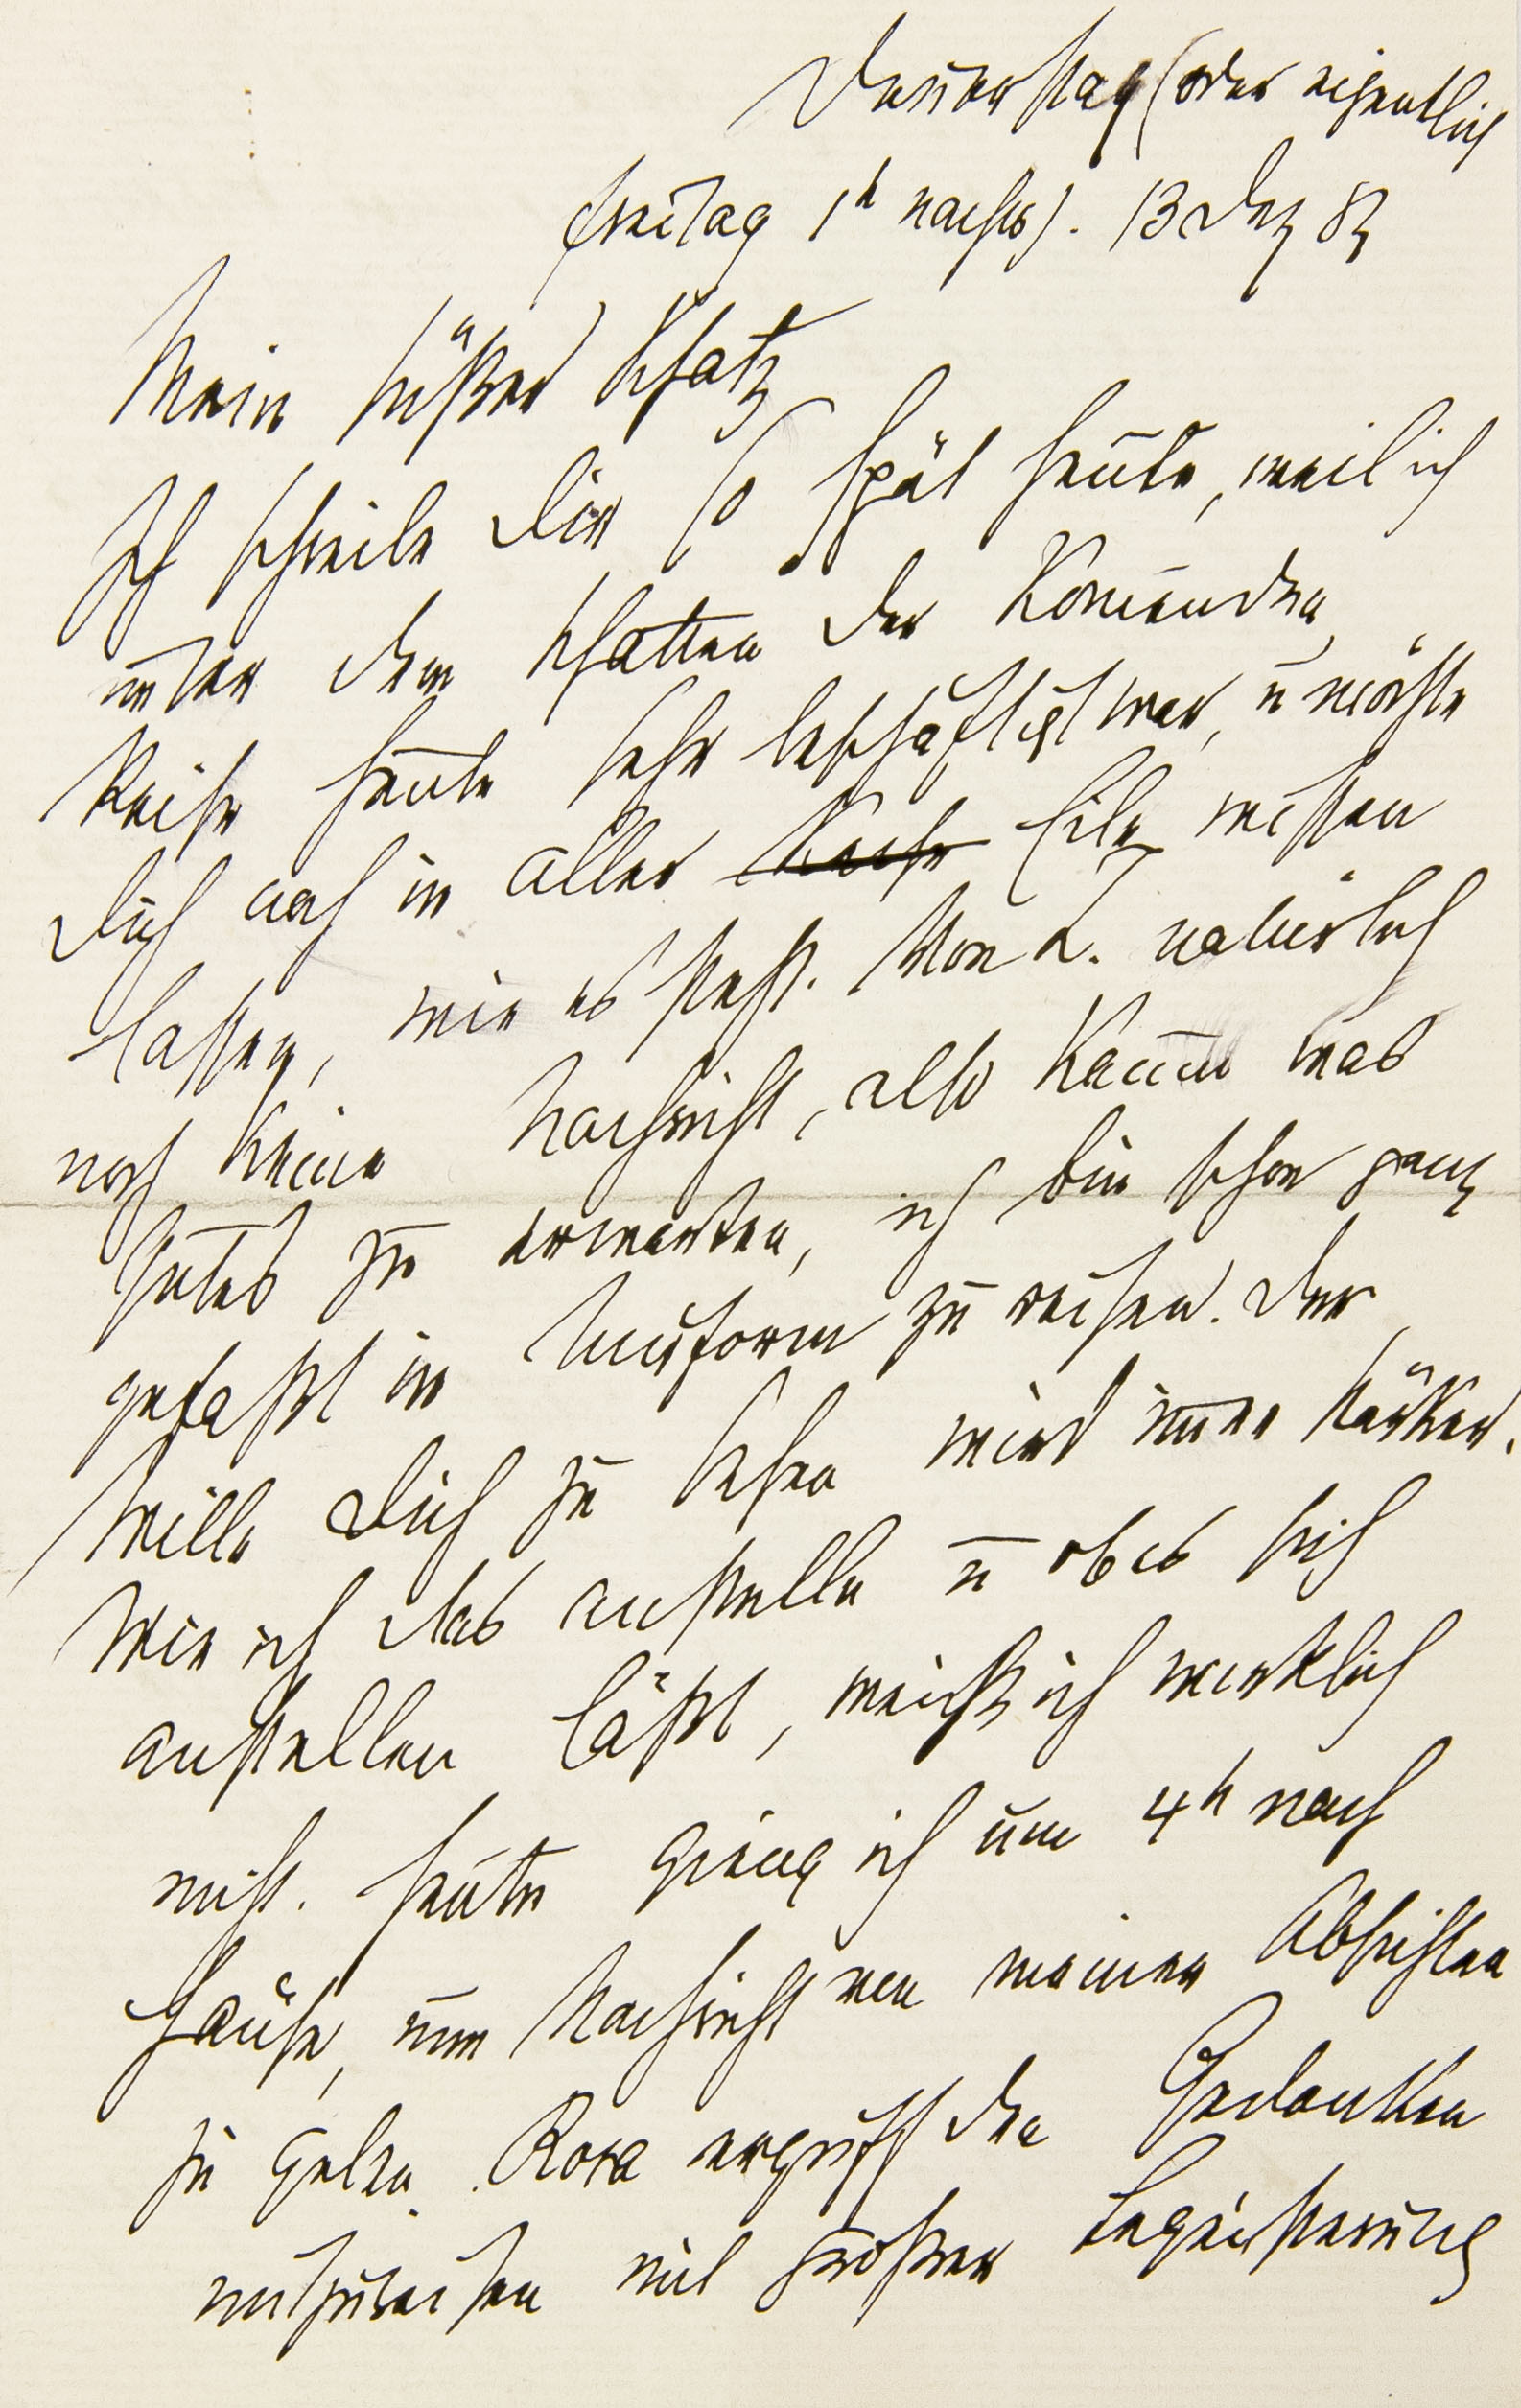 Donnerstag (oder eigentlich
Freitag 1h nachts). 13 Dez 83
Mein süßer Schatz
Ich schreibe Dir so spät heute, weil ich
unter dem Schatten der Kom̅enden
Reise heute sehr beschäftigt war, u möchte
Dich nach in aller Eile wissen
lassen, wie es steht. Von L. natürlich
noch keine Nachricht, also kaum was
Gutes zu erwarten, ich bin schon ganz
gefaßt in Uniform zu reisen. Der
Wille Dich zu sehen wird im̅er stärker.
Wie ich das anstelle u ob es sich
anstellen läßt, weiß ich wirklich
nicht. Heute gieng ich um 4h nach
Hause, um Nachricht von meinen Absichten
zu geben. Rosa ergriff den Gedanken
mitzureisen mit großer Begeisterung